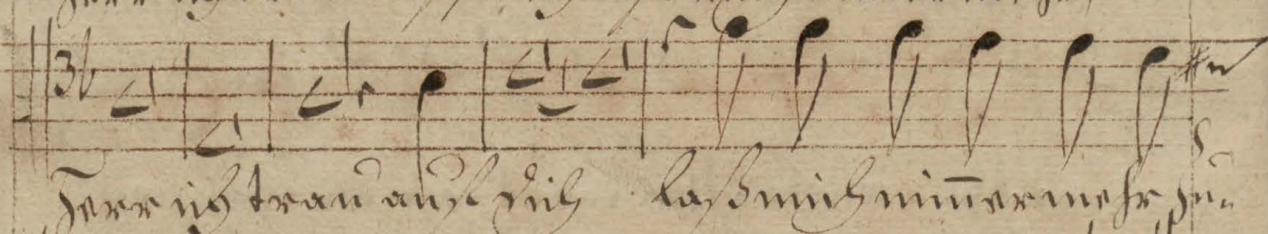 Herr ich trau auf dich laß mich nim̅ermehr zu-